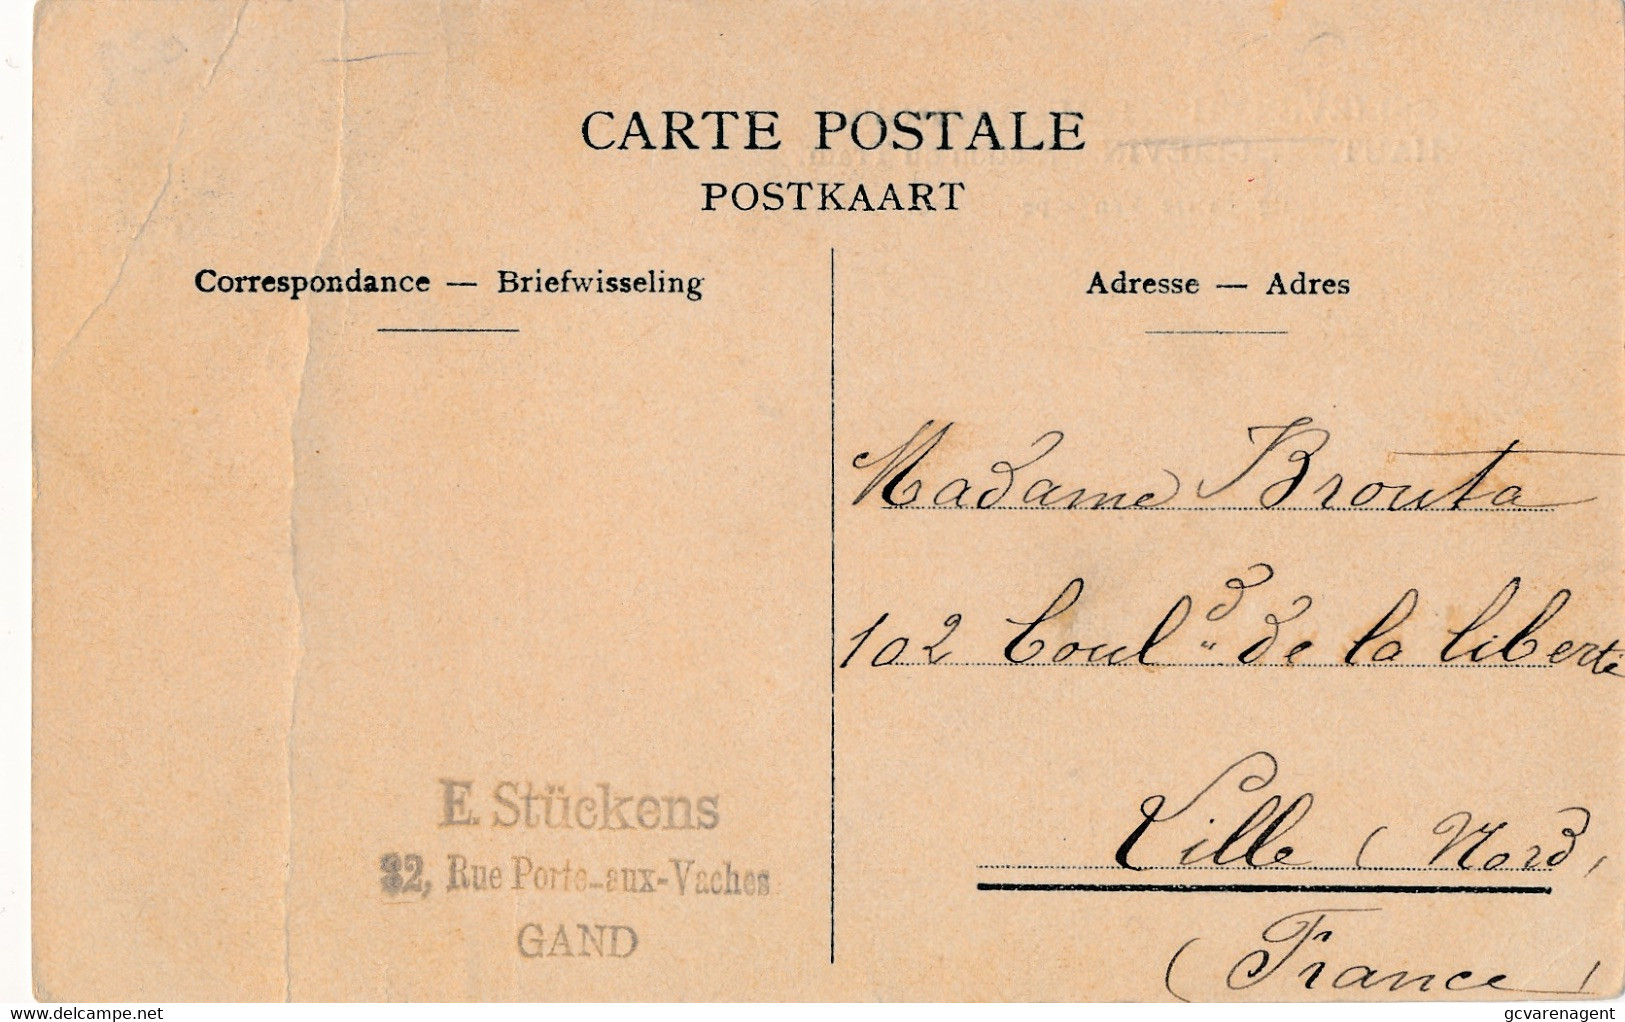 CARTE POSTALE
POSTKAART
Correspondance — Briefwisseling
Adresse — Adres
Madame Brouta
102 Boul d de la liberté
Lille (Nord)
(France)
E. Stückens
32, Rue Porte-aux-Vaches
GAND
delcampe.net
gcvarenagent